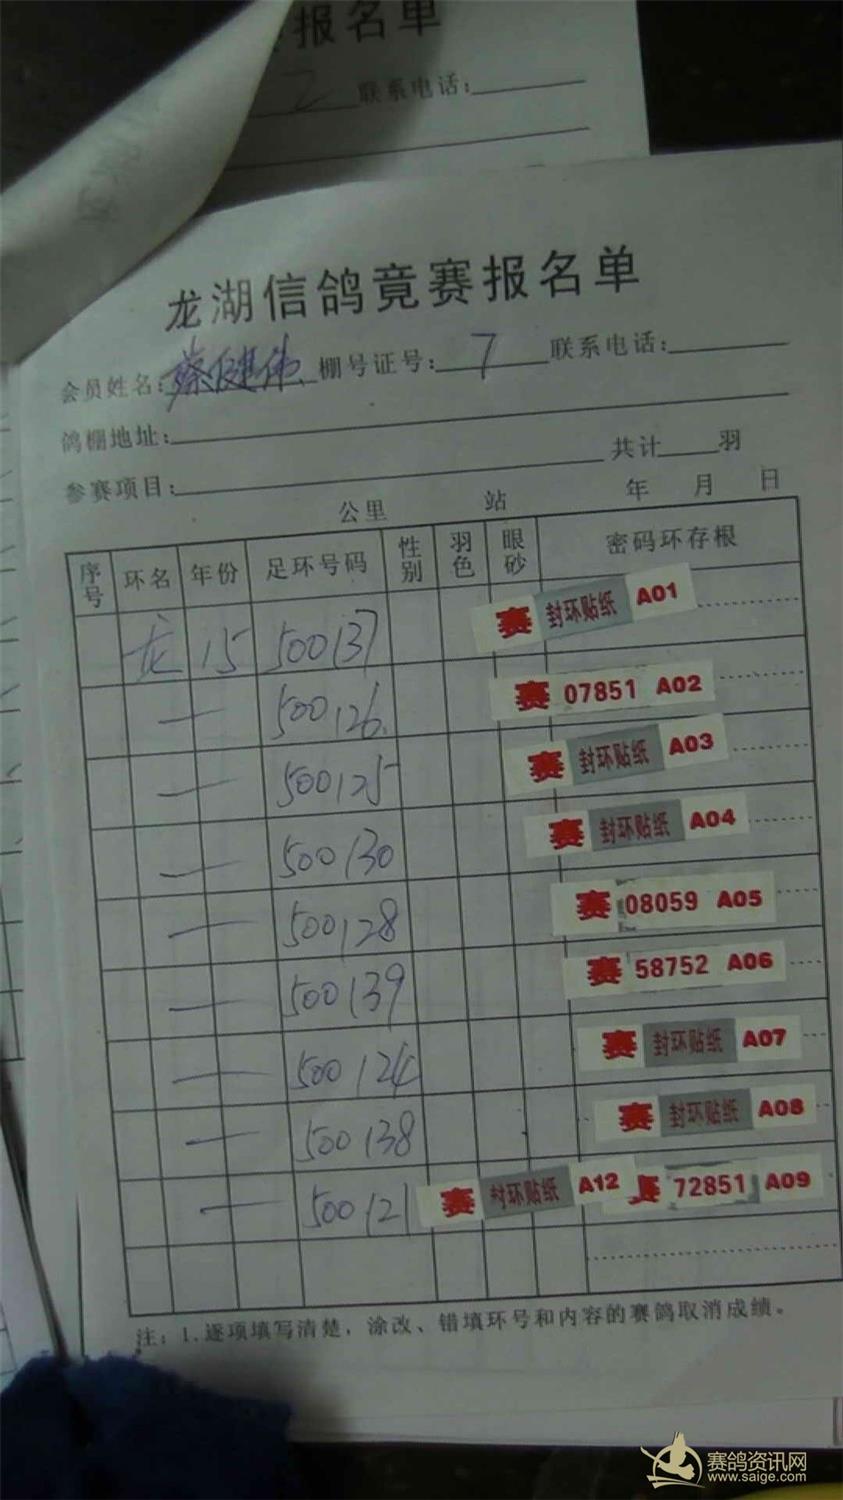 报名单
联系电话:
龙湖信鸽竟赛报名单
会员姓名: 蔡健伟 棚号证号: 7 联系电话:
鸽棚地址:
参赛项目: 共计 羽
公里 站 年 月 日
序号 环名 年份 足环号码 性别 羽色 眼砂 密码环存根
龙 15 500137 赛 封环贴纸 A01
— 500126 赛 07851 A02
— 500125 赛 封环贴纸 A03
— 500130 赛 封环贴纸 A04
— 500128 赛 08059 A05
— 500139 赛 58752 A06
— 500124 赛 封环贴纸 A07
— 500138 赛 封环贴纸 A08
— 500121 赛 封环贴纸 A12 赛 72851 A09
注: 1.逐项填写清楚, 涂改、错填环号和内容的赛鸽取消成绩。
赛鸽资讯网
www.saige.com